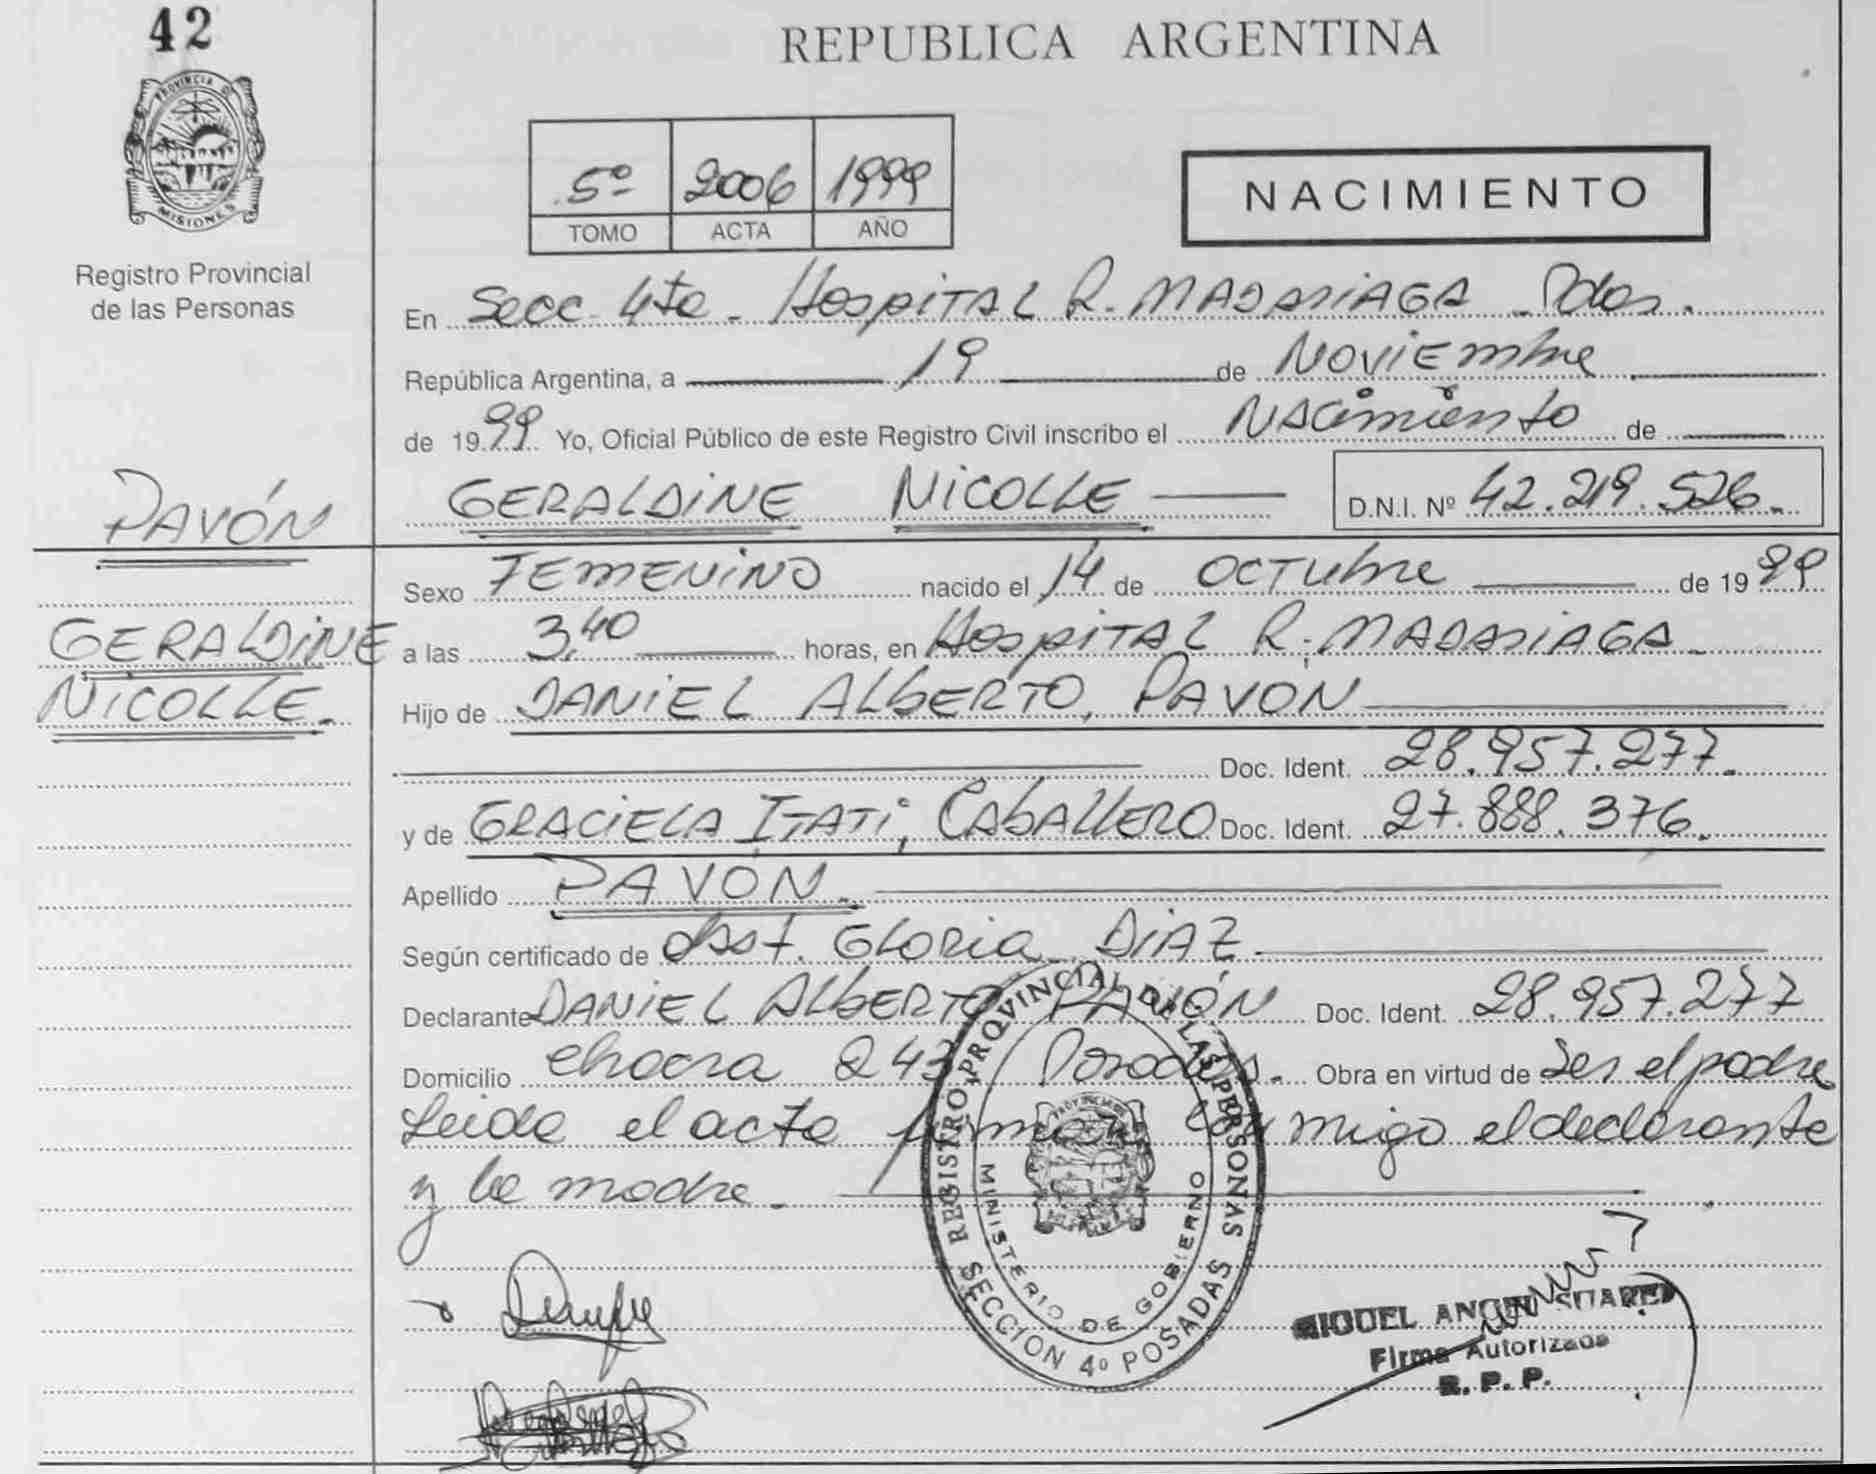 42
PROVINCIA DE
MISIONES
Registro Provincial
de las Personas
REPUBLICA ARGENTINA
5º 2006 1999
TOMO ACTA AÑO
NACIMIENTO
En Secc. 4ta - Hospital R. Madariaga - Pdas.
República Argentina, a 19 de Noviembre
de 1999 Yo, Oficial Público de este Registro Civil inscribo el Nacimiento de
PAVÓN
GERALDINE NICOLLE D.N.I. Nº 42.219.526.-
GERALDINE
NICOLLE.-
Sexo FEMENINO nacido el 14 de OCTubre de 1999
a las 3,40 horas, en Hospital R. MADARIAGA -
Hijo de DANIEL ALBERTO, PAVÓN
Doc. Ident. 28.957.277.-
y de GRACIELA ITATI, CABALLERO Doc. Ident. 27.888.376.
Apellido PAVÓN.-
Según certificado de Obst. Gloria DIAZ
Declarante DANIEL ALBERTO PAVÓN Doc. Ident. 28.957.277
Domicilio Chacra 243 Posadas.- Obra en virtud de Ser el padre
Leida el acta firman conmigo el declarante
y la madre.-
REGISTRO PROVINCIAL DE LAS PERSONAS
SECCION 4º POSADAS
MINISTERIO DE GOBIERNO
MIGUEL ANGEL SUAREZ
Firma Autorizada
R. P. P.